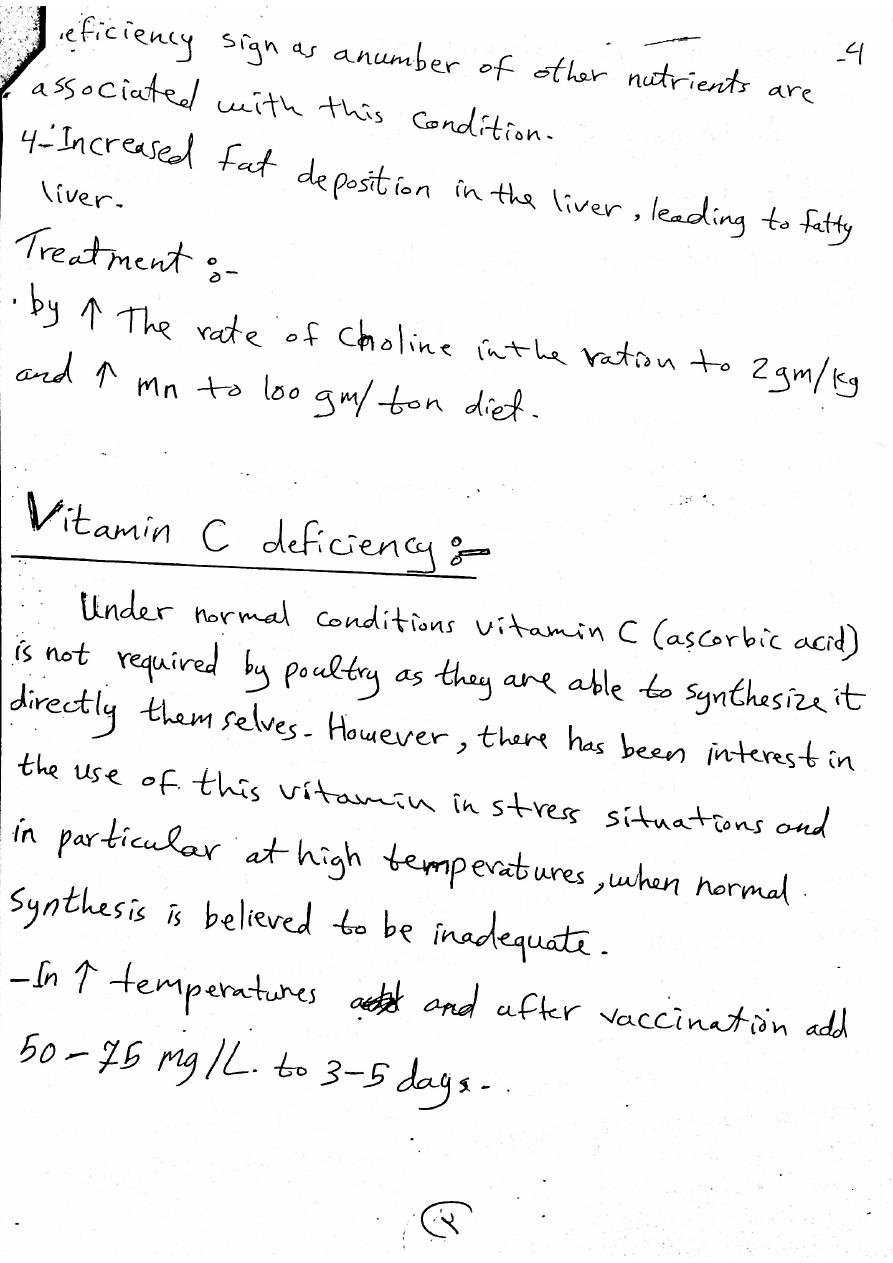 eficiency sign as anumber of other nutrients are
-4
associated with this Condition.
4- Increased fat deposition in the liver, leading to fatty
liver.
Treatment :-
. by ↑ The rate of Choline in the ration to 2 gm/kg
and ↑ Mn to 100 gm/ton diet.
Vitamin C deficiency :-
Under normal conditions vitamin C (ascorbic acid)
is not required by poultry as they are able to synthesize it
directly them selves. However, there has been interest in
the use of this vitamin in stress situations and
in particular at high temperatures, when normal.
Synthesis is believed to be inadequate.
- In ↑ temperatures and after vaccination add
50 - 75 mg/L. to 3-5 days.